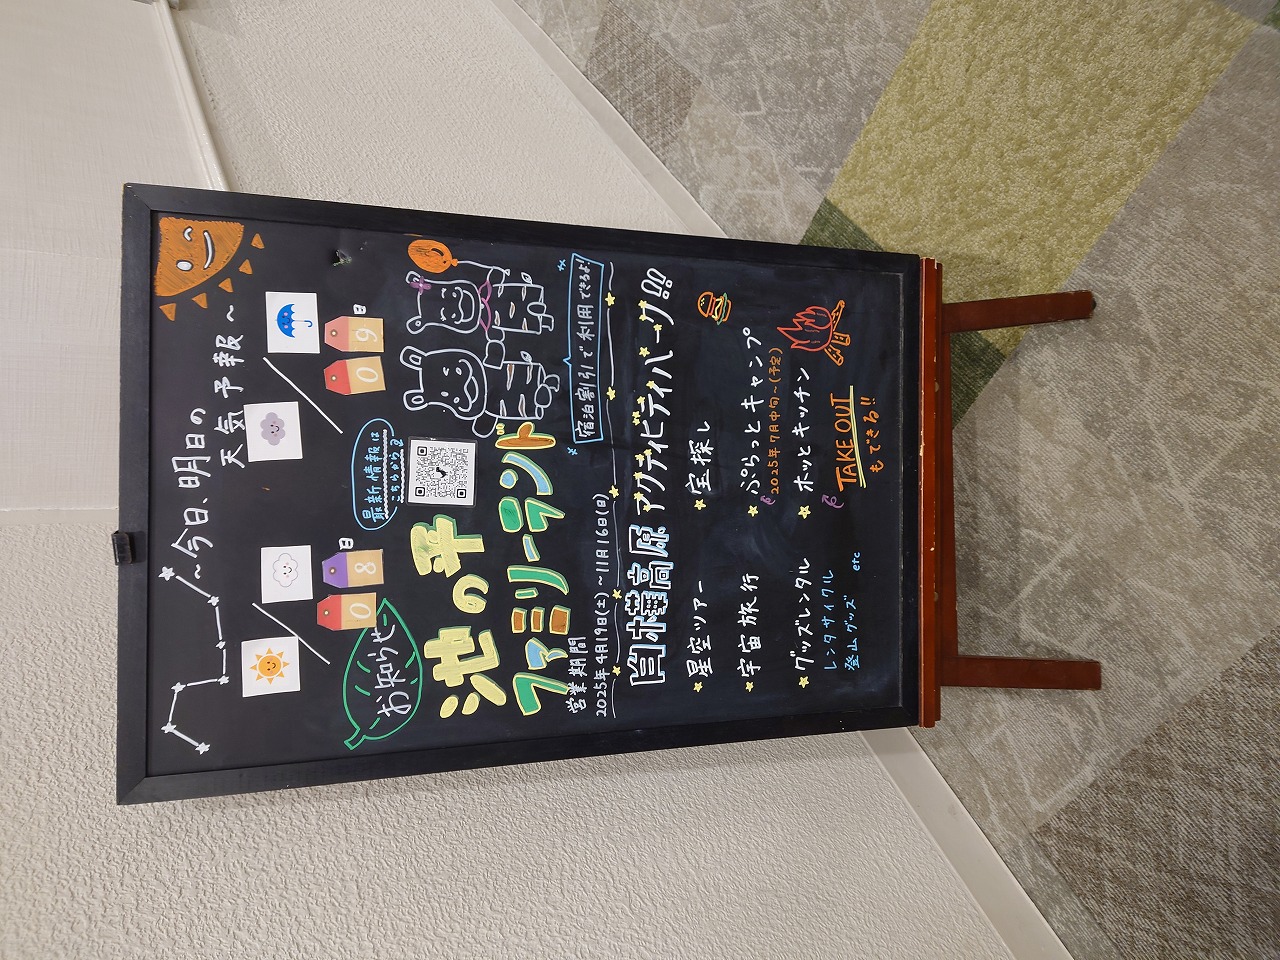 ～今日、明日の
天気予報～
08日
09日
お知らせ
最新情報は
こちらから
池の平
ファミリーランド
営業期間
2025年4月19日(土)～11月16日(日)
宿泊割引で利用できるよ!
白樺高原 アクティビティパーク!!
星空ツアー
宝探し
宇宙旅行
ぷらっとキャンプ
2025年7月中旬～(予定)
グッズレンタル
レンタサイクル
登山グッズ etc
ホッとキッチン
TAKE OUT
もできる!!